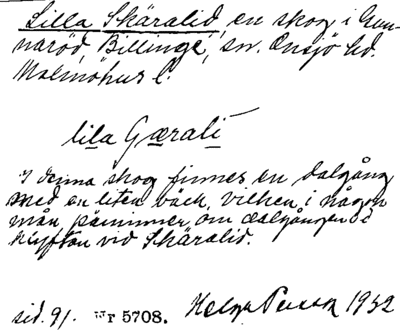 Lilla Skäralid, en skog i Gun-
naröd, Billinge, sn. Onsjö hd.
Malmöhus l.
lila Gærali
I denna skog finnes en dalgång
med en liten bäck, vilken i någon
mån påminner om dalgången i
klyftan vid Skäralid.
sid. 91. Nr 5708. Helge Persson 1932